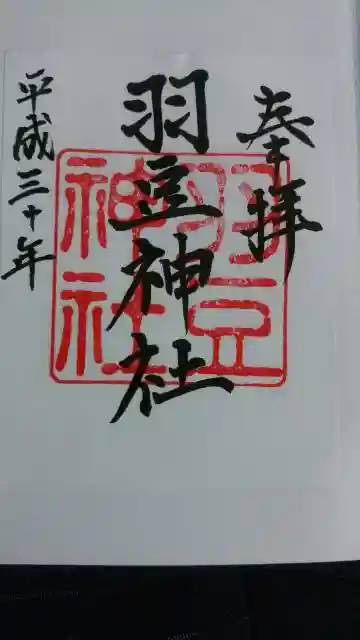 奉拝
羽豆神社
羽豆
神社
平成三十年